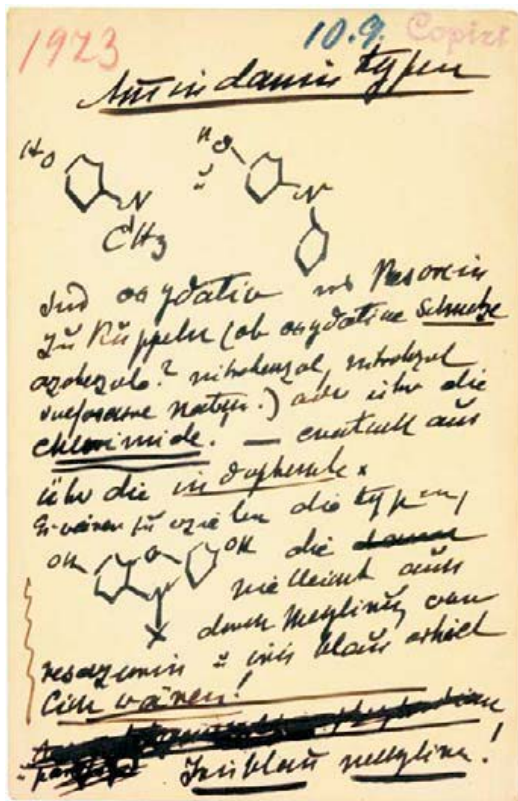 1923 10.9. Copirt
Aus indamin typen
HO HO
N u N
CH3
sind oxydativ mit Resorcin
zu kuppeln (ob oxydative Schmelze
azobenzole? nitrobenzol, nitrobenzol
sulfosaure natr.) oder über die
chlorimide. — eventuell auch
über die indophenole x
Es wären zu erzielen die typen,
OH O OH die
N vielleicht auch
X durch Methylirung von
resazurin u iris blau erhält
lich wären!
Irisblau methyliren!